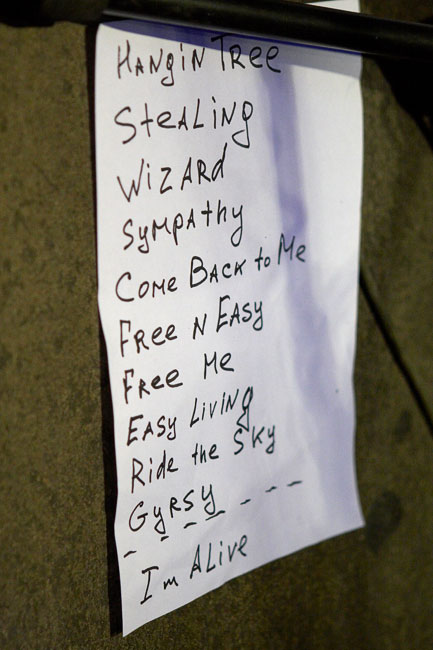 HANgiN TREE
SteALiNg
WiZARd
SyMPAthy
COMe BACK to Me
FRee N EASy
FRee Me
EASy LiviNg
Ride the SKy
GyRSy
- - - - - - -
I'm ALive